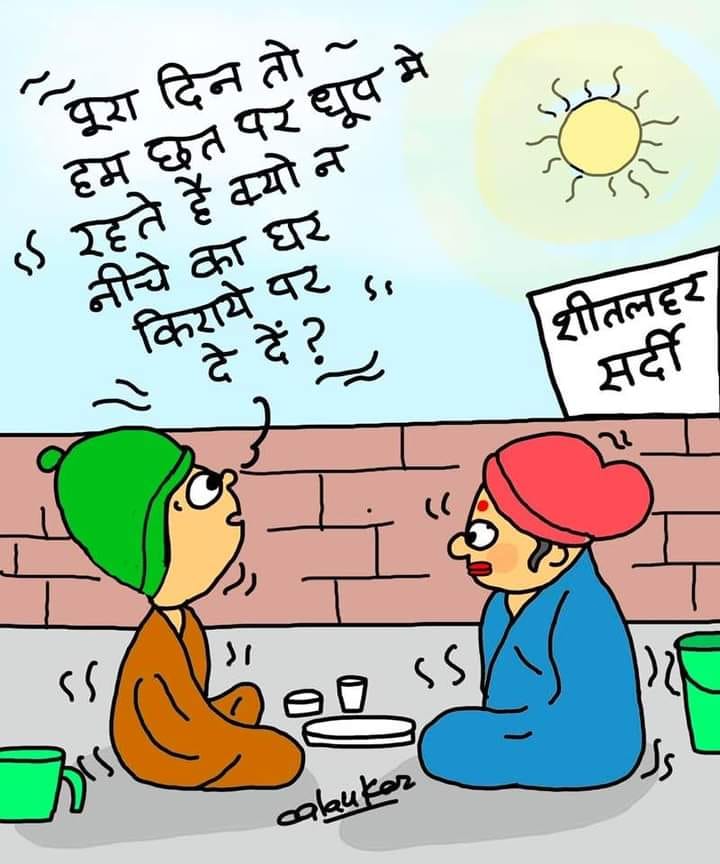 पूरा दिन तो
हम छत पर धूप मे
रहते है क्यो न
नीचे का घर
किराये पर
दे दें?
शीतलहर
सर्दी